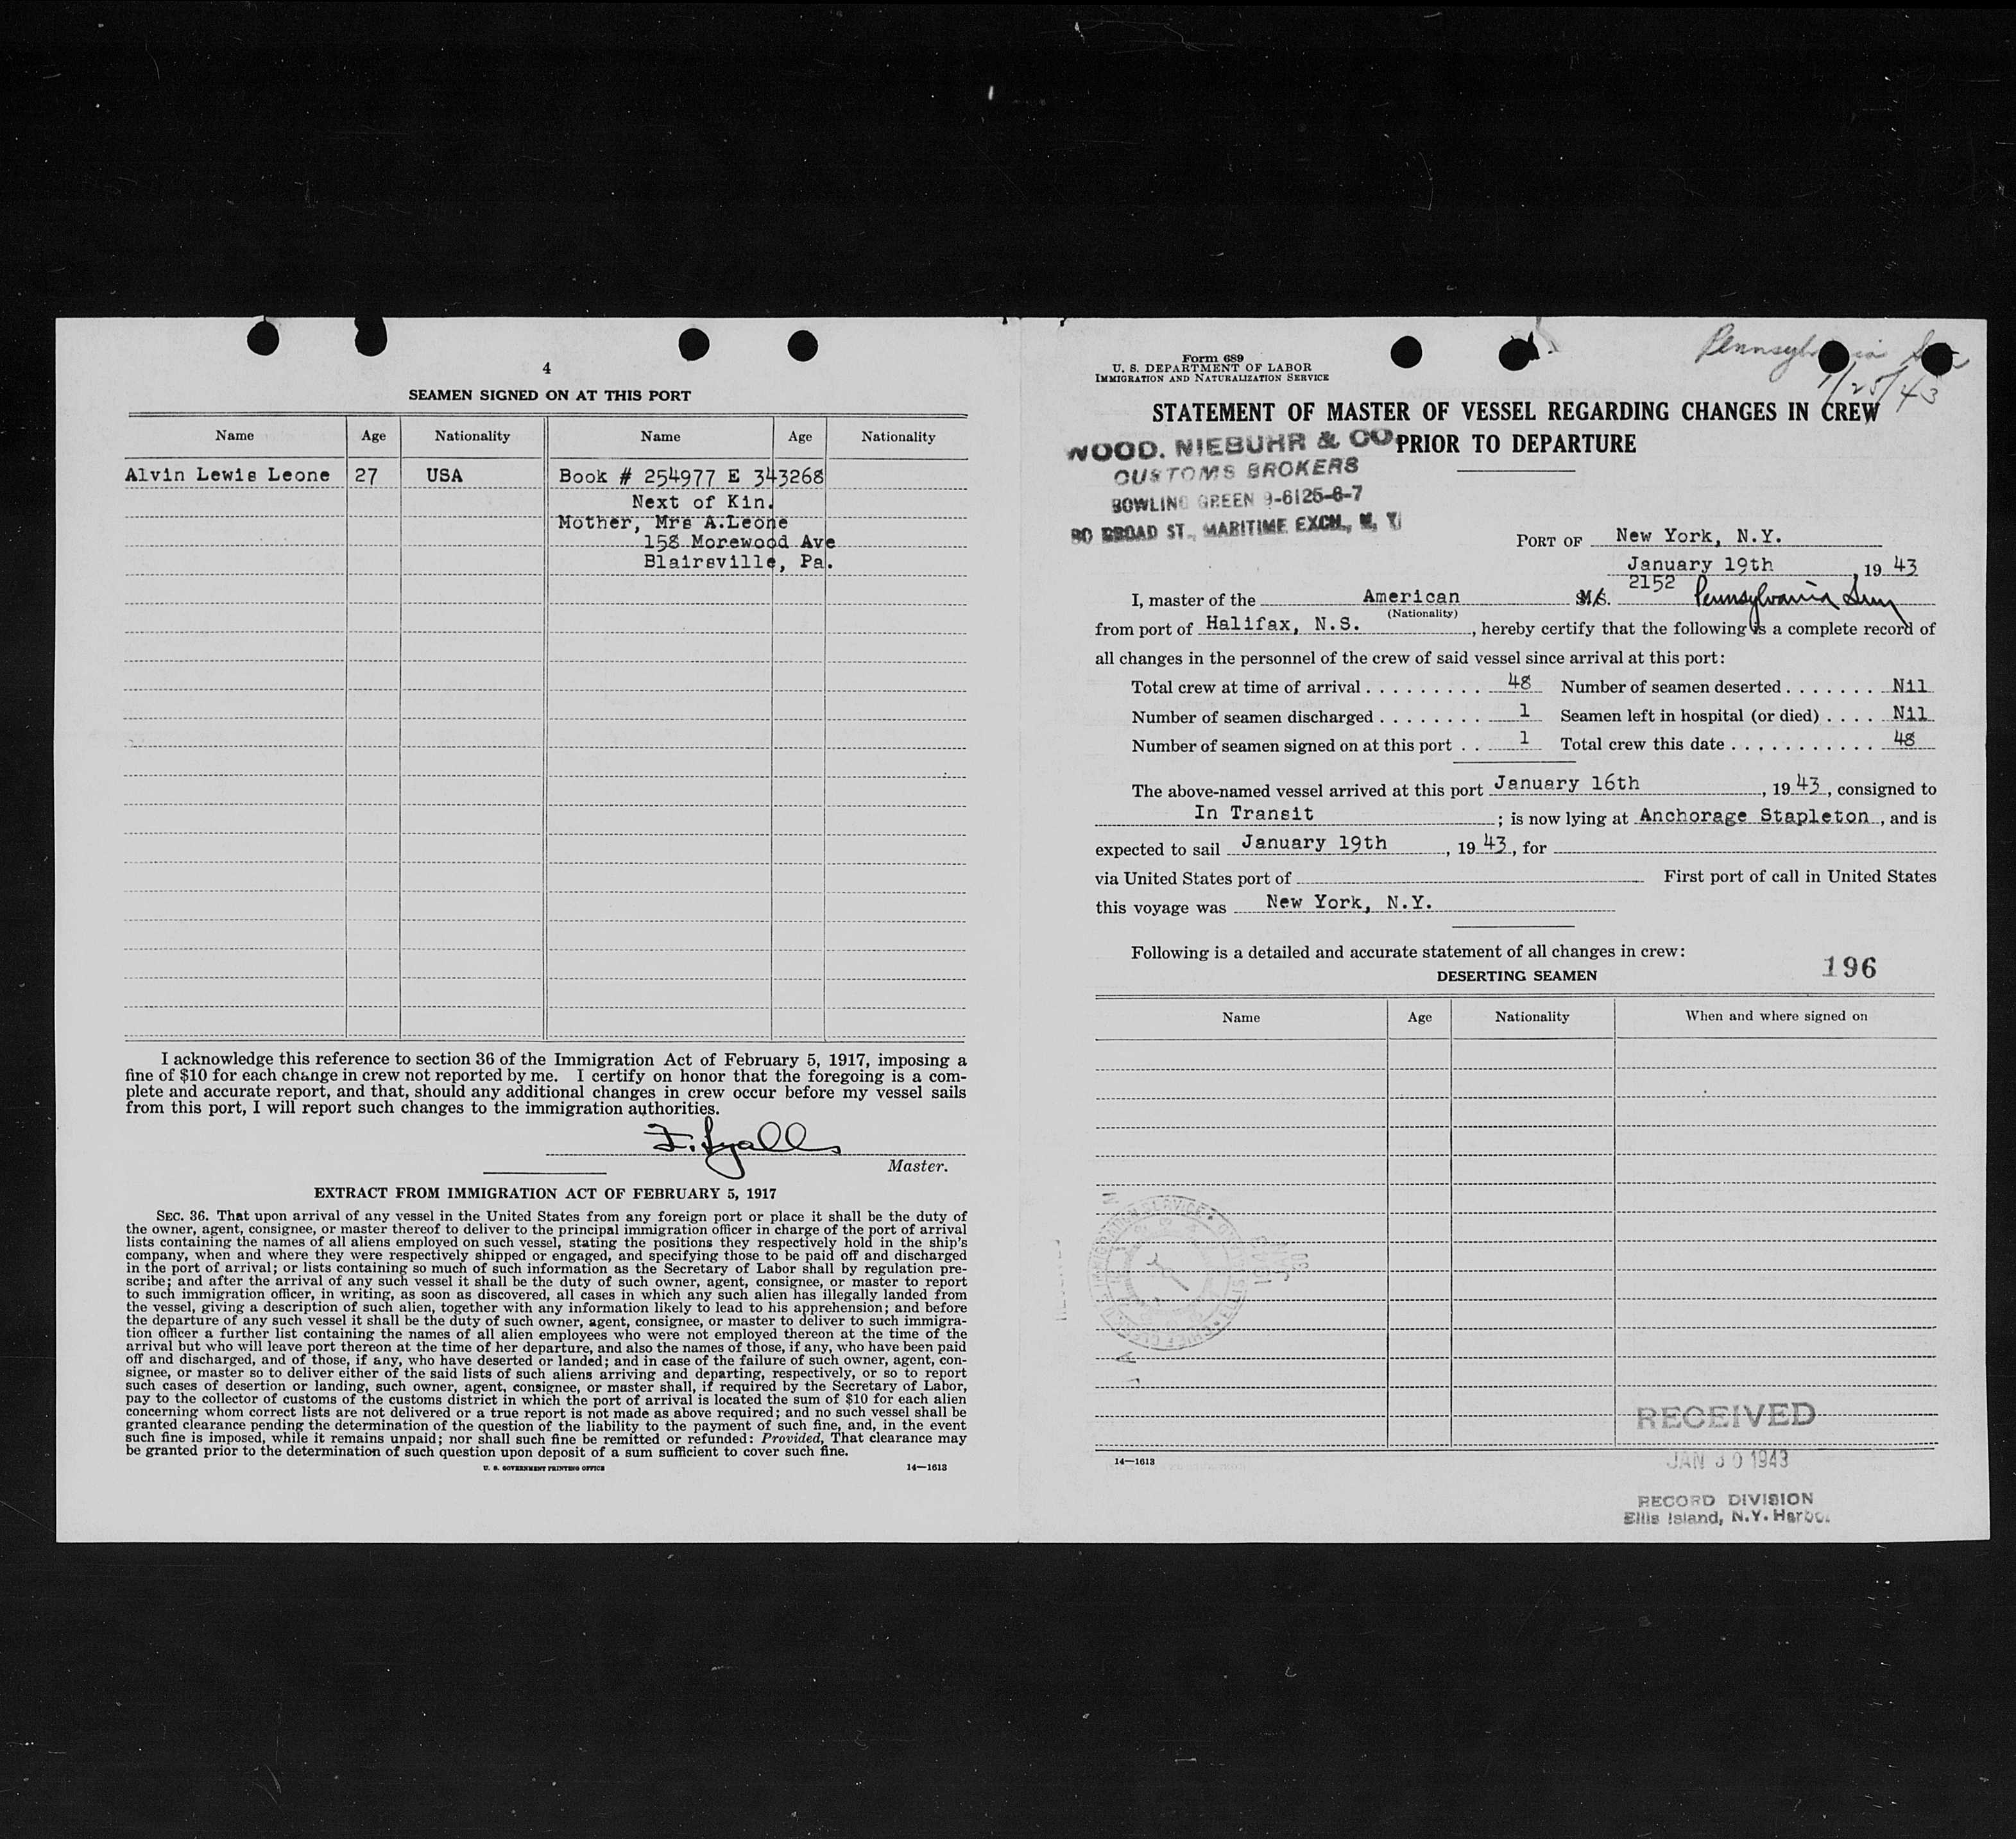 4
SEAMEN SIGNED ON AT THIS PORT
Name Age Nationality Name Age Nationality
Alvin Lewis Leone 27 USA Book # 254977 E 343268
Next of Kin.
Mother, Mrs A.Leone
158 Morewood Ave
Blairsville, Pa.
I acknowledge this reference to section 36 of the Immigration Act of February 5, 1917, imposing a
fine of $10 for each change in crew not reported by me. I certify on honor that the foregoing is a com-
plete and accurate report, and that, should any additional changes in crew occur before my vessel sails
from this port, I will report such changes to the immigration authorities.
F. Lyalls
Master.
EXTRACT FROM IMMIGRATION ACT OF FEBRUARY 5, 1917
SEC. 36. That upon arrival of any vessel in the United States from any foreign port or place it shall be the duty of
the owner, agent, consignee, or master thereof to deliver to the principal immigration officer in charge of the port of arrival
lists containing the names of all aliens employed on such vessel, stating the positions they respectively hold in the ship's
company, when and where they were respectively shipped or engaged, and specifying those to be paid off and discharged
in the port of arrival; or lists containing so much of such information as the Secretary of Labor shall by regulation pre-
scribe; and after the arrival of any such vessel it shall be the duty of such owner, agent, consignee, or master to report
to such immigration officer, in writing, as soon as discovered, all cases in which any such alien has illegally landed from
the vessel, giving a description of such alien, together with any information likely to lead to his apprehension; and before
the departure of any such vessel it shall be the duty of such owner, agent, consignee, or master to deliver to such immigra-
tion officer a further list containing the names of all alien employees who were not employed thereon at the time of the
arrival but who will leave port thereon at the time of her departure, and also the names of those, if any, who have been paid
off and discharged, and of those, if any, who have deserted or landed; and in case of the failure of such owner, agent, con-
signee, or master so to deliver either of the said lists of such aliens arriving and departing, respectively, or so to report
such cases of desertion or landing, such owner, agent, consignee, or master shall, if required by the Secretary of Labor,
pay to the collector of customs of the customs district in which the port of arrival is located the sum of $10 for each alien
concerning whom correct lists are not delivered or a true report is not made as above required; and no such vessel shall be
granted clearance pending the determination of the question of the liability to the payment of such fine, and, in the event
such fine is imposed, while it remains unpaid; nor shall such fine be remitted or refunded: Provided, That clearance may
be granted prior to the determination of such question upon deposit of a sum sufficient to cover such fine.
U. S. GOVERNMENT PRINTING OFFICE 14—1613
Form 689
U. S. DEPARTMENT OF LABOR
IMMIGRATION AND NATURALIZATION SERVICE
1/25/43
STATEMENT OF MASTER OF VESSEL REGARDING CHANGES IN CREW
PRIOR TO DEPARTURE
WOOD, NIEBUHR & CO
CUSTOMS BROKERS
BOWLING GREEN 9-6125-6-7
80 BROAD ST., MARITIME EXCH., N. Y.
PORT OF New York, N.Y.
January 19th, 1943
2152
I, master of the American M/S. Pennsylvania Sun
(Nationality)
from port of Halifax, N.S., hereby certify that the following is a complete record of
all changes in the personnel of the crew of said vessel since arrival at this port:
Total crew at time of arrival . . . . . . . . . 48 Number of seamen deserted . . . . . . . Nil
Number of seamen discharged . . . . . . . . 1 Seamen left in hospital (or died) . . . . Nil
Number of seamen signed on at this port . . 1 Total crew this date . . . . . . . . . . . 48
The above-named vessel arrived at this port January 16th, 1943, consigned to
In Transit; is now lying at Anchorage Stapleton, and is
expected to sail January 19th, 1943, for
via United States port of First port of call in United States
this voyage was New York, N.Y.
Following is a detailed and accurate statement of all changes in crew:
DESERTING SEAMEN 196
Name Age Nationality When and where signed on
RECEIVED
14—1613
JAN 30 1943
RECORD DIVISION
Ellis Island, N.Y. Harbor